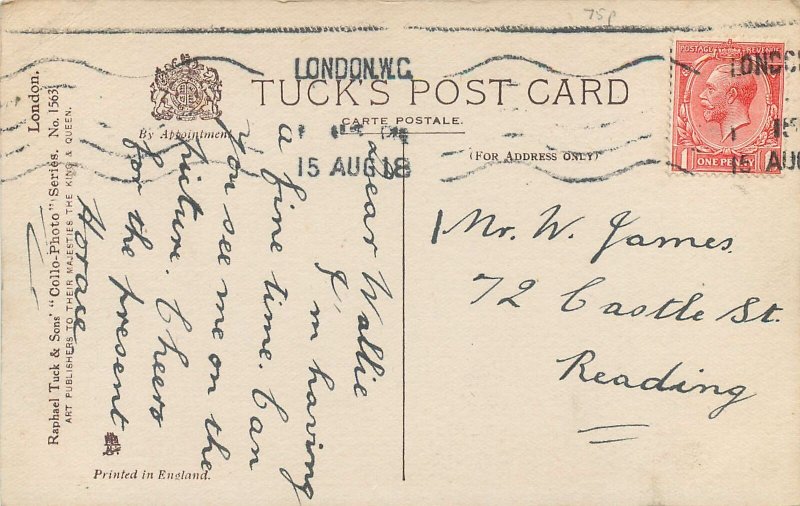 75p
LONDON.W.C.
15 AUG 18
TUCK'S POST CARD
CARTE POSTALE.
(FOR ADDRESS ONLY)
By Appointment
POSTAGE REVENUE
1 ONE PENNY 1
LONDON
15
15 AUG
Dear Wallie
I'm having
a fine time. Can
you see me on the
picture. Cheers
for the present
Horace
Mr. W. James.
72 Castle St.
Reading
London.
Raphael Tuck & Sons' "Collo-Photo" Series. No. 1563.
ART PUBLISHERS TO THEIR MAJESTIES THE KING & QUEEN.
Printed in England.